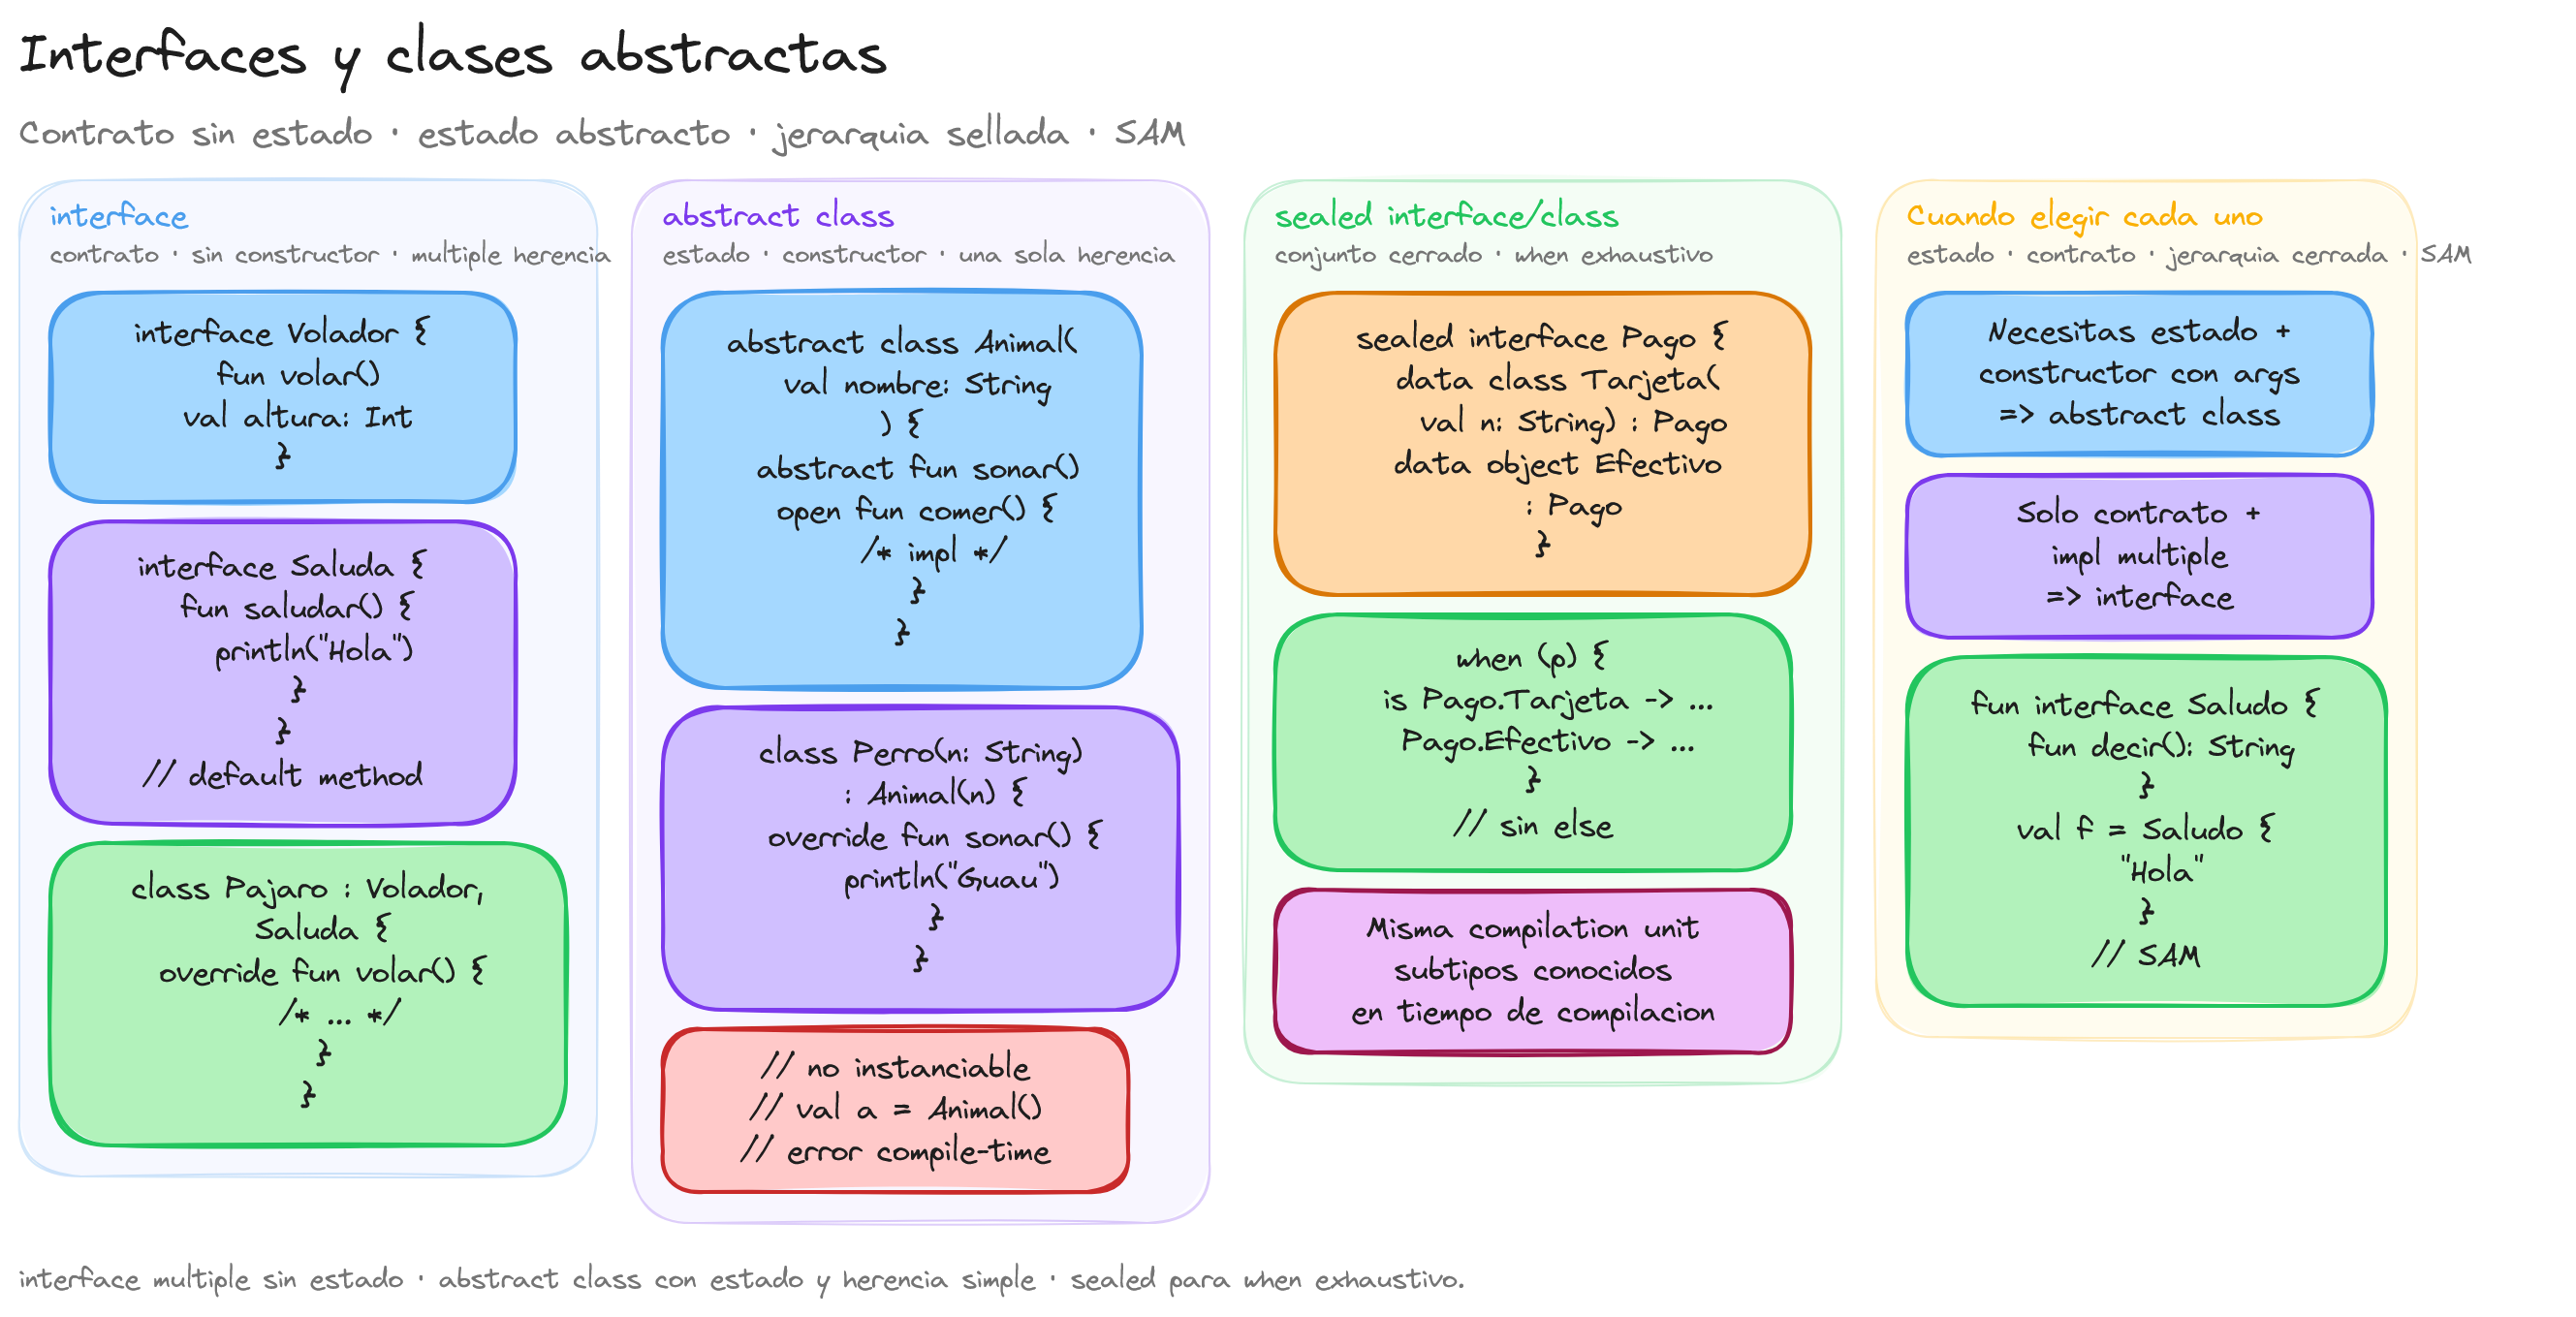 Interfaces y clases abstractas
Contrato sin estado · estado abstracto · jerarquia sellada · SAM
interface
contrato · sin constructor · multiple herencia
interface Volador {
fun volar()
val altura: Int
}
interface Saluda {
fun saludar() {
println("Hola")
}
}
// default method
class Pajaro : Volador,
Saluda {
override fun volar() {
/* ... */
}
}
abstract class
estado · constructor · una sola herencia
abstract class Animal(
val nombre: String
) {
abstract fun sonar()
open fun comer() {
/* impl */
}
}
class Perro(n: String)
: Animal(n) {
override fun sonar() {
println("Guau")
}
}
// no instanciable
// val a = Animal()
// error compile-time
sealed interface/class
conjunto cerrado · when exhaustivo
sealed interface Pago {
data class Tarjeta(
val n: String) : Pago
data object Efectivo
: Pago
}
when (p) {
is Pago.Tarjeta -> ...
Pago.Efectivo -> ...
}
// sin else
Misma compilation unit
subtipos conocidos
en tiempo de compilacion
Cuando elegir cada uno
estado · contrato · jerarquia cerrada · SAM
Necesitas estado +
constructor con args
=> abstract class
Solo contrato +
impl multiple
=> interface
fun interface Saludo {
fun decir(): String
}
val f = Saludo {
"Hola"
}
// SAM
interface multiple sin estado · abstract class con estado y herencia simple · sealed para when exhaustivo.